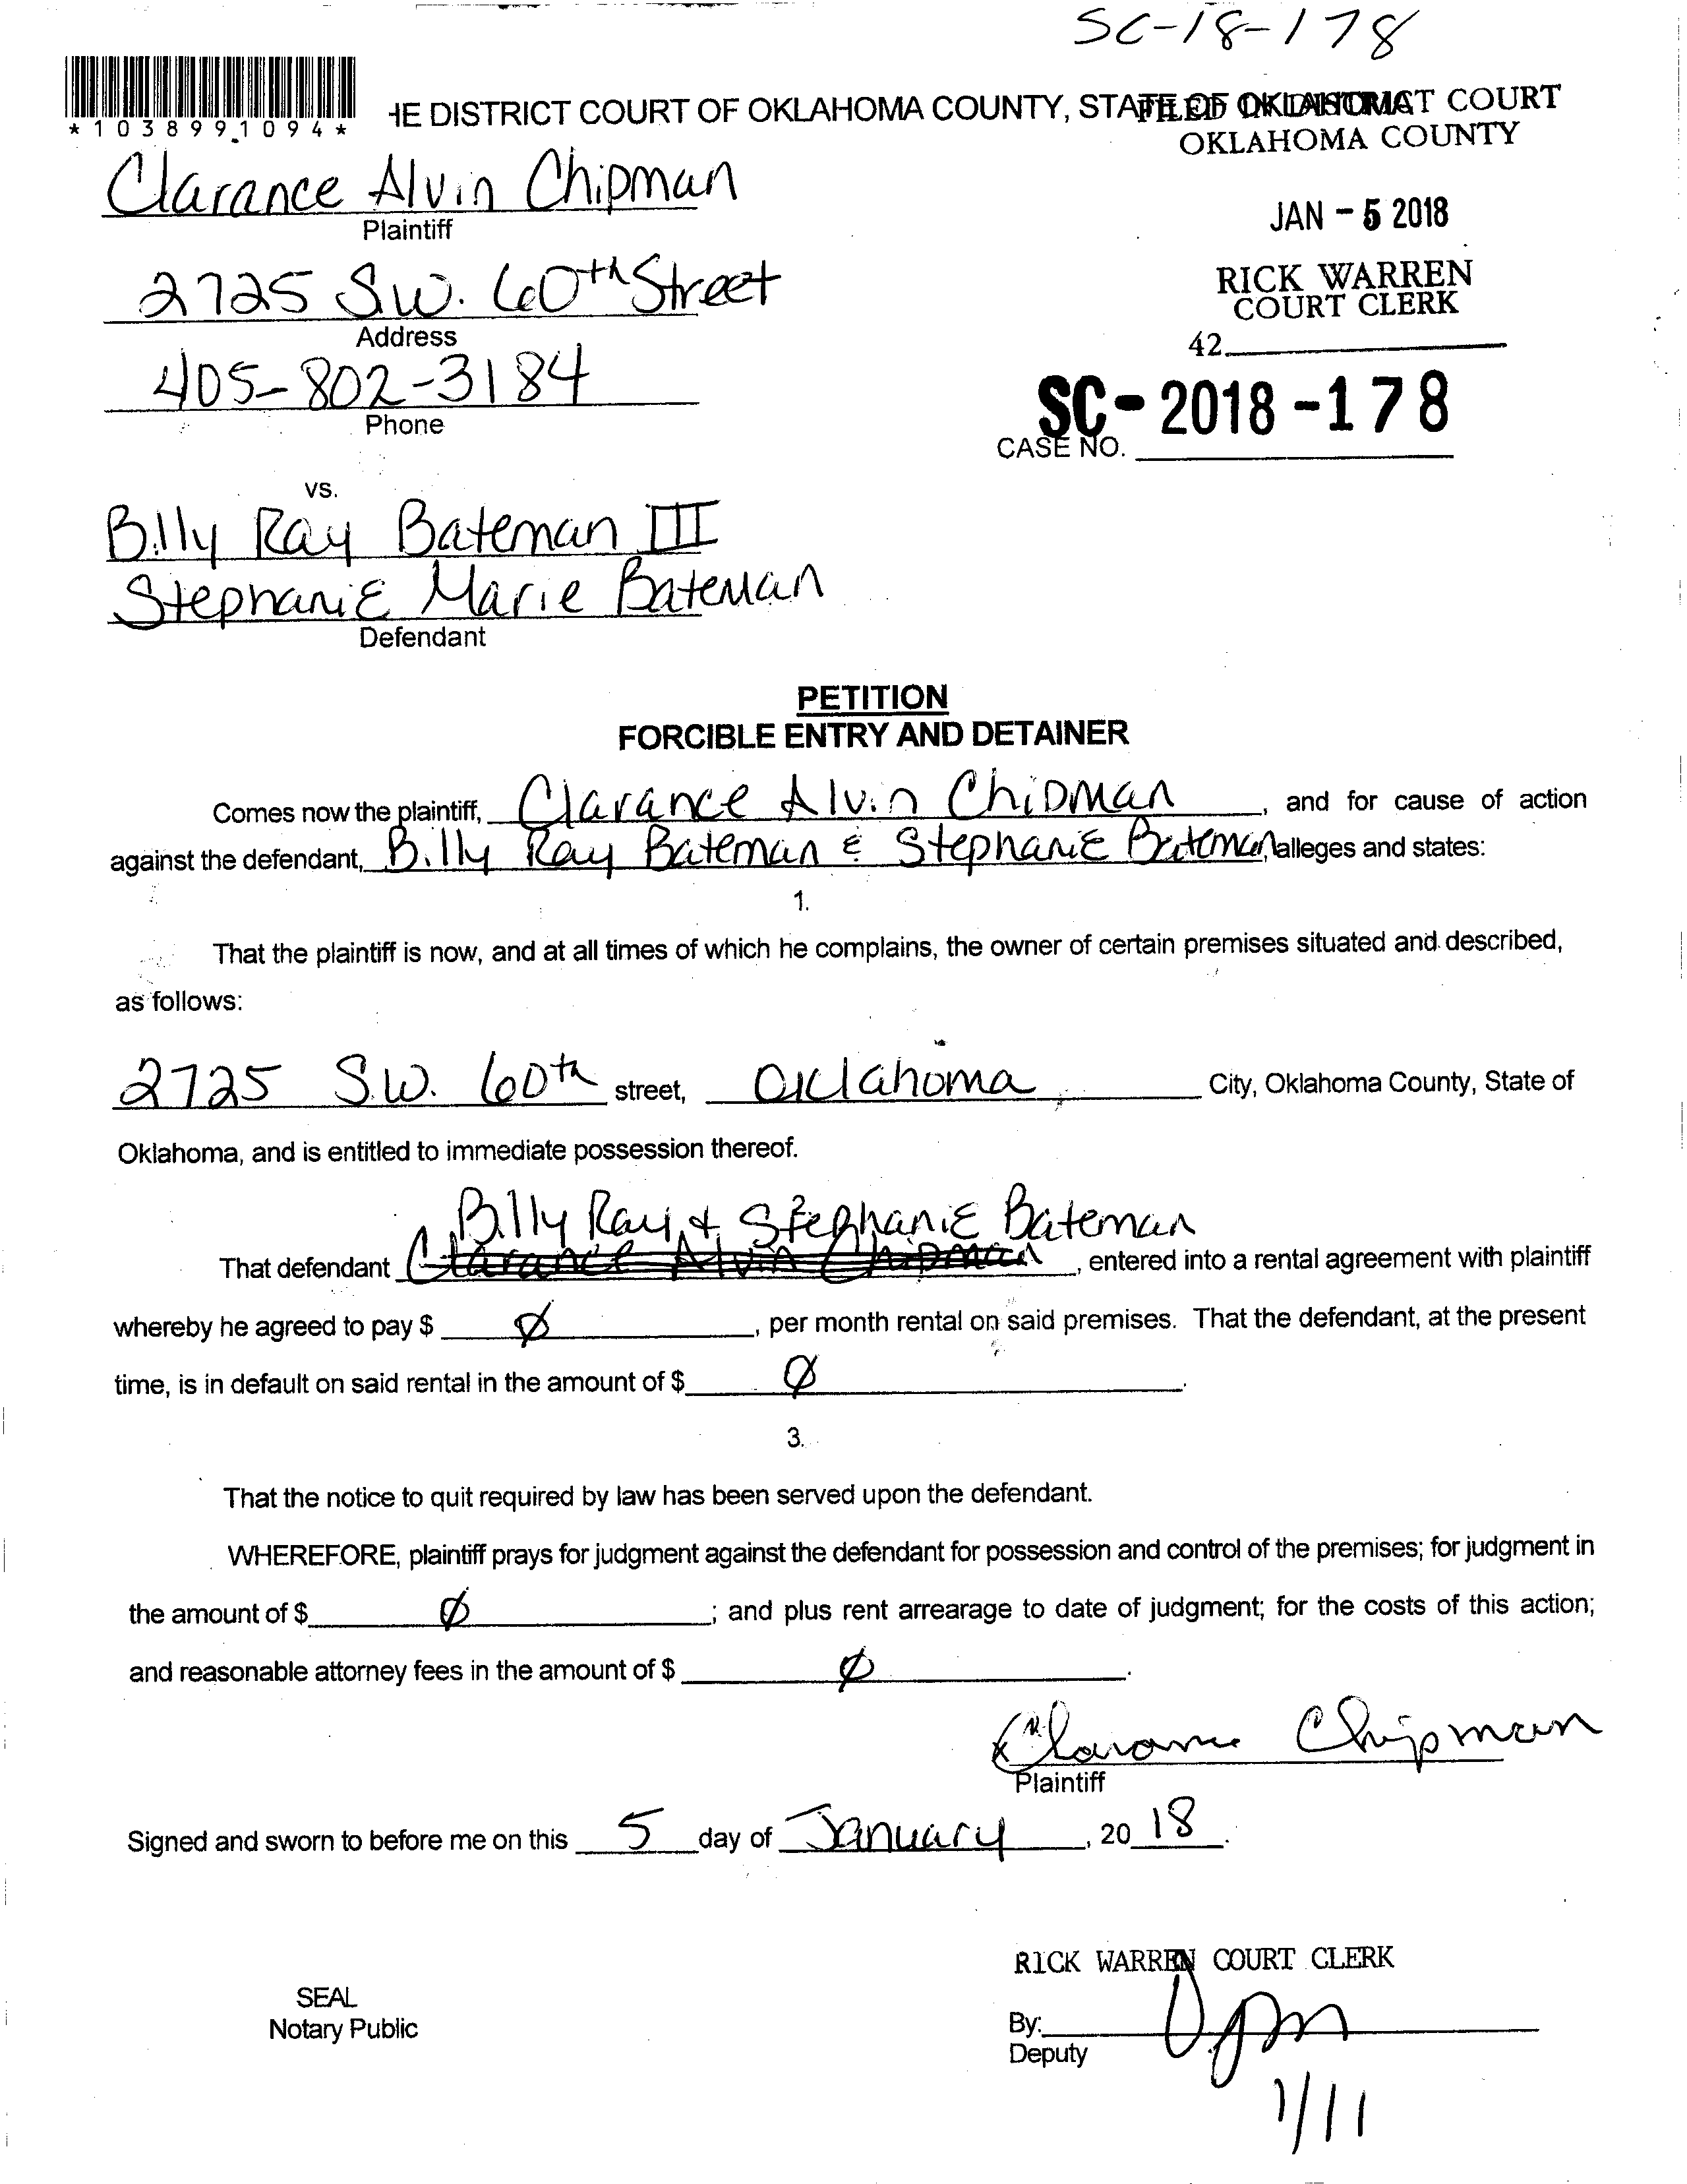 SC-18-178
*1038991094*
HE DISTRICT COURT OF OKLAHOMA COUNTY, STATE OF OKLAHOMA
FILED IN DISTRICT COURT
OKLAHOMA COUNTY
Clarance Alvin Chipman
Plaintiff
JAN - 5 2018
2725 S.W. 60th Street
Address
RICK WARREN
COURT CLERK
42
405-802-3184
Phone
SC-2018-178
CASE NO.
vs.
Billy Ray Bateman III
Stephanie Marie Bateman
Defendant
PETITION
FORCIBLE ENTRY AND DETAINER
Comes now the plaintiff, Clarance Alvin Chipman, and for cause of action
against the defendant, Billy Ray Bateman & Stephanie Bateman, alleges and states:
1.
That the plaintiff is now, and at all times of which he complains, the owner of certain premises situated and described,
as follows:
2725 S.W. 60th street, Oklahoma City, Oklahoma County, State of
Oklahoma, and is entitled to immediate possession thereof.
2.
Billy Ray & Stephanie Bateman
That defendant Clarance Alvin Chipman, entered into a rental agreement with plaintiff
whereby he agreed to pay $ Ø, per month rental on said premises. That the defendant, at the present
time, is in default on said rental in the amount of $ Ø.
3.
That the notice to quit required by law has been served upon the defendant.
WHEREFORE, plaintiff prays for judgment against the defendant for possession and control of the premises; for judgment in
the amount of $ Ø; and plus rent arrearage to date of judgment; for the costs of this action;
and reasonable attorney fees in the amount of $ Ø.
x Clarance Chipman
Plaintiff
Signed and sworn to before me on this 5 day of January, 2018.
RICK WARREN COURT CLERK
SEAL
Notary Public
By:
Deputy
1/11